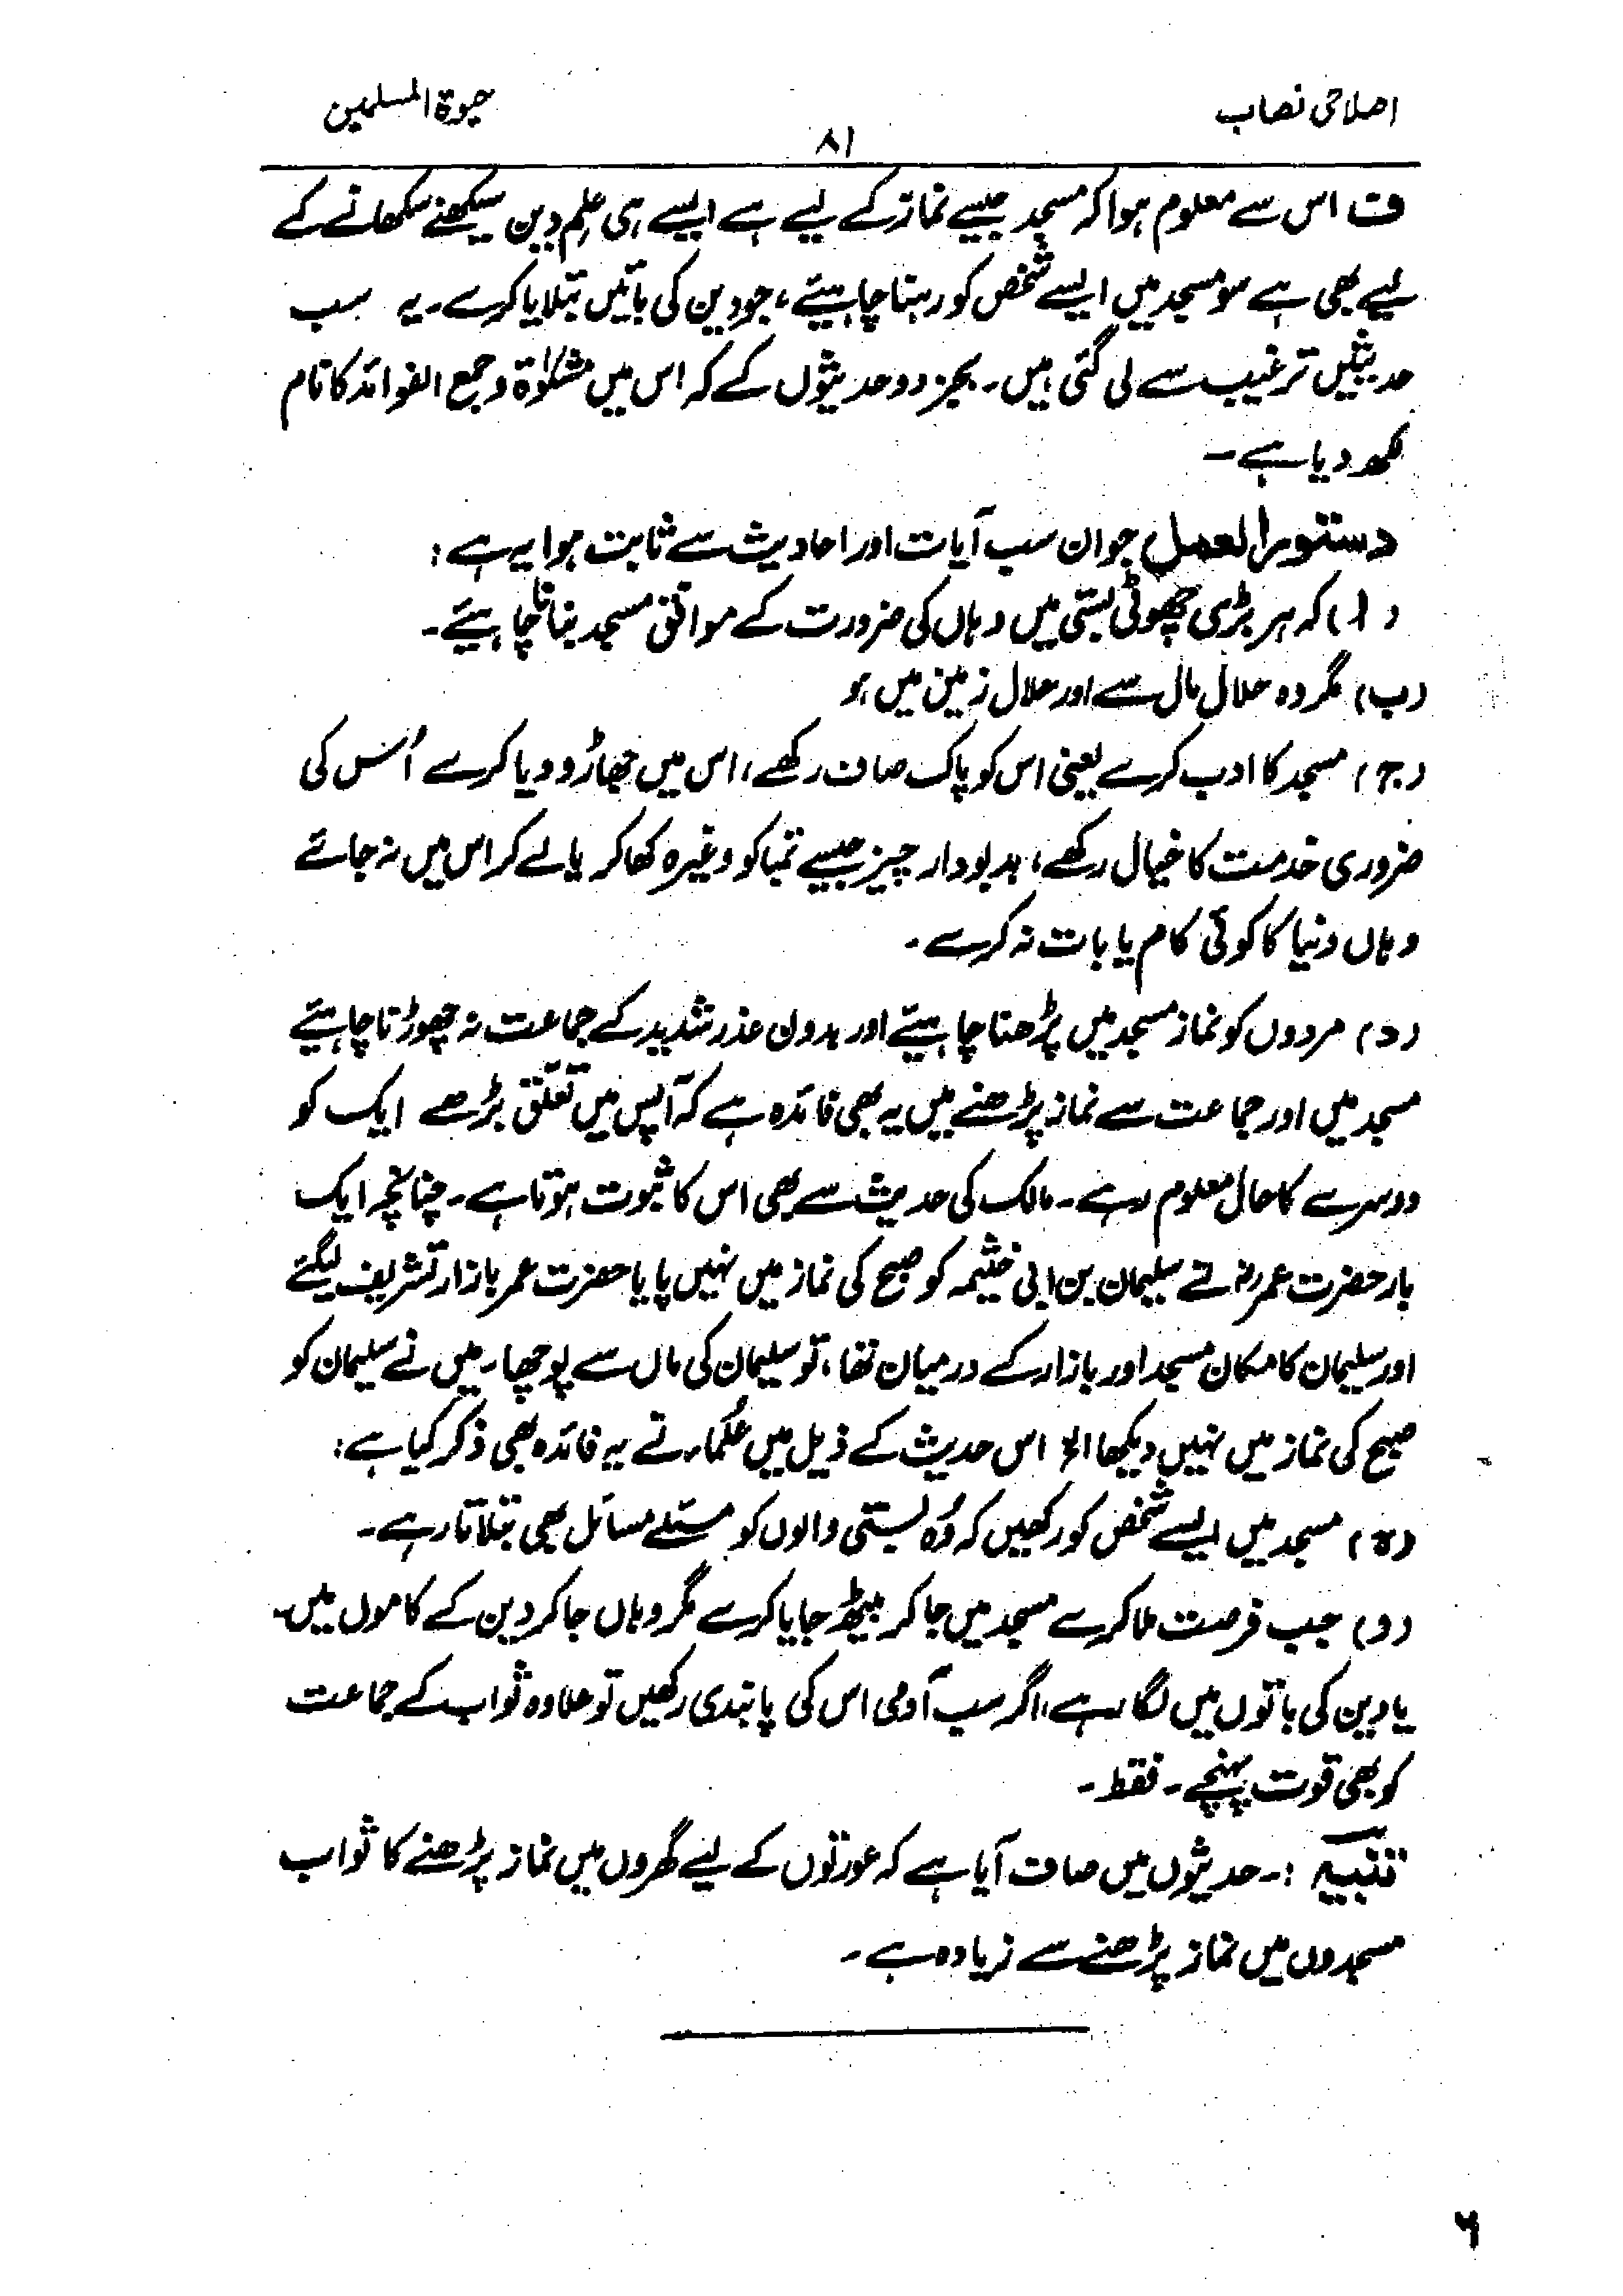 اصلاحی نصاب
۸۱
حیوۃ المسلمین
ف اس سے معلوم ہوا کہ مسجد جیسے نماز کے لیے ہے ایسے ہی علمِ دین سیکھنے سکھانے کے
لیے بھی ہے سو مسجد میں ایسے شخص کو رہنا چاہیئے، جو دین کی باتیں بتلایا کرے۔ یہ سب
حدیثیں ترغیب سے لی گئی ہیں۔ بجز دو حدیثوں کے کہ اس میں مشکوٰۃ و جمع الفوائد کا نام
لکھ دیا ہے۔
دستور العمل جو ان سب آیات اور احادیث سے ثابت ہوا یہ ہے:
(ا) کہ ہر بڑی چھوٹی بستی میں وہاں کی ضرورت کے موافق مسجد بنانا چاہیئے۔
(ب) مگر وہ حلال مال سے اور حلال زمین میں ہو
(ج) مسجد کا ادب کرے یعنی اس کو پاک صاف رکھے، اس میں جھاڑو دیا کرے اُس کی
ضروری خدمت کا خیال رکھے، بدبودار چیز جیسے تمباکو وغیرہ کھا کر یا لے کر اس میں نہ جائے
وہاں دنیا کا کوئی کام یا بات نہ کرے۔
(د) مردوں کو نماز مسجد میں پڑھنا چاہیئے اور بدون عذر شدید کے جماعت نہ چھوڑنا چاہیئے
مسجد میں اور جماعت سے نماز پڑھنے میں یہ بھی فائدہ ہے کہ آپس میں تعلّق بڑھے ایک کو
دوسرے کا حال معلوم رہے۔ مالک کی حدیث سے بھی اس کا ثبوت ہوتا ہے۔ چنانچہ ایک
بار حضرت عمرؓ نے سلیمان بن ابی خثیمہ کو صبح کی نماز میں نہیں پایا حضرت عمر بازار تشریف لیگئے
اور سلیمان کا مکان مسجد اور بازار کے درمیان تھا، تو سلیمان کی ماں سے پوچھا۔ میں نے سلیمان کو
صبح کی نماز میں نہیں دیکھا الخ اس حدیث کے ذیل میں عُلماء نے یہ فائدہ بھی ذکر کیا ہے:
(ہ) مسجد میں ایسے شخص کو رکھیں کہ وُہ بستی والوں کو مسئلے مسائل بھی بتلاتا رہے۔
(و) جب فرصت ملا کرے مسجد میں جا کر بیٹھ جایا کرے مگر وہاں جا کر دین کے کاموں میں۔
یا دین کی باتوں میں لگا رہے، اگر سب آدمی اس کی پابندی رکھیں تو علاوہ ثواب کے جماعت
کو بھی قوت پہنچے۔ فقط۔
تنبیہ :۔ حدیثوں میں صاف آیا ہے کہ عورتوں کے لیے گھروں میں نماز پڑھنے کا ثواب
مسجدوں میں نماز پڑھنے سے زیادہ ہے۔
۶